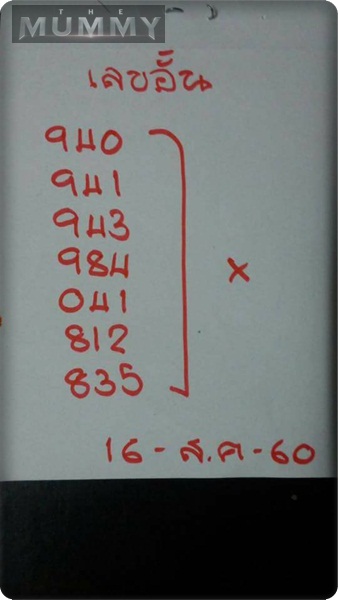 THE
MUMMY
เลขอั้น
940
941
943
984
041
812
835
×
16 - ส.ค - 60